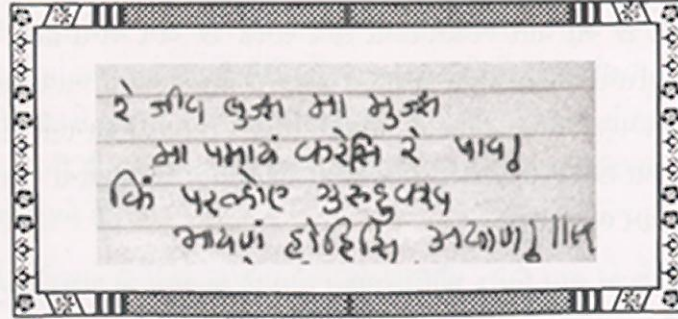 रे जीव बुज्झ मा मुज्झ
मा पमायं करेसि रे पाव!
किं परलोए गुरुदुक्ख
भायणं होहिसि अयाण!